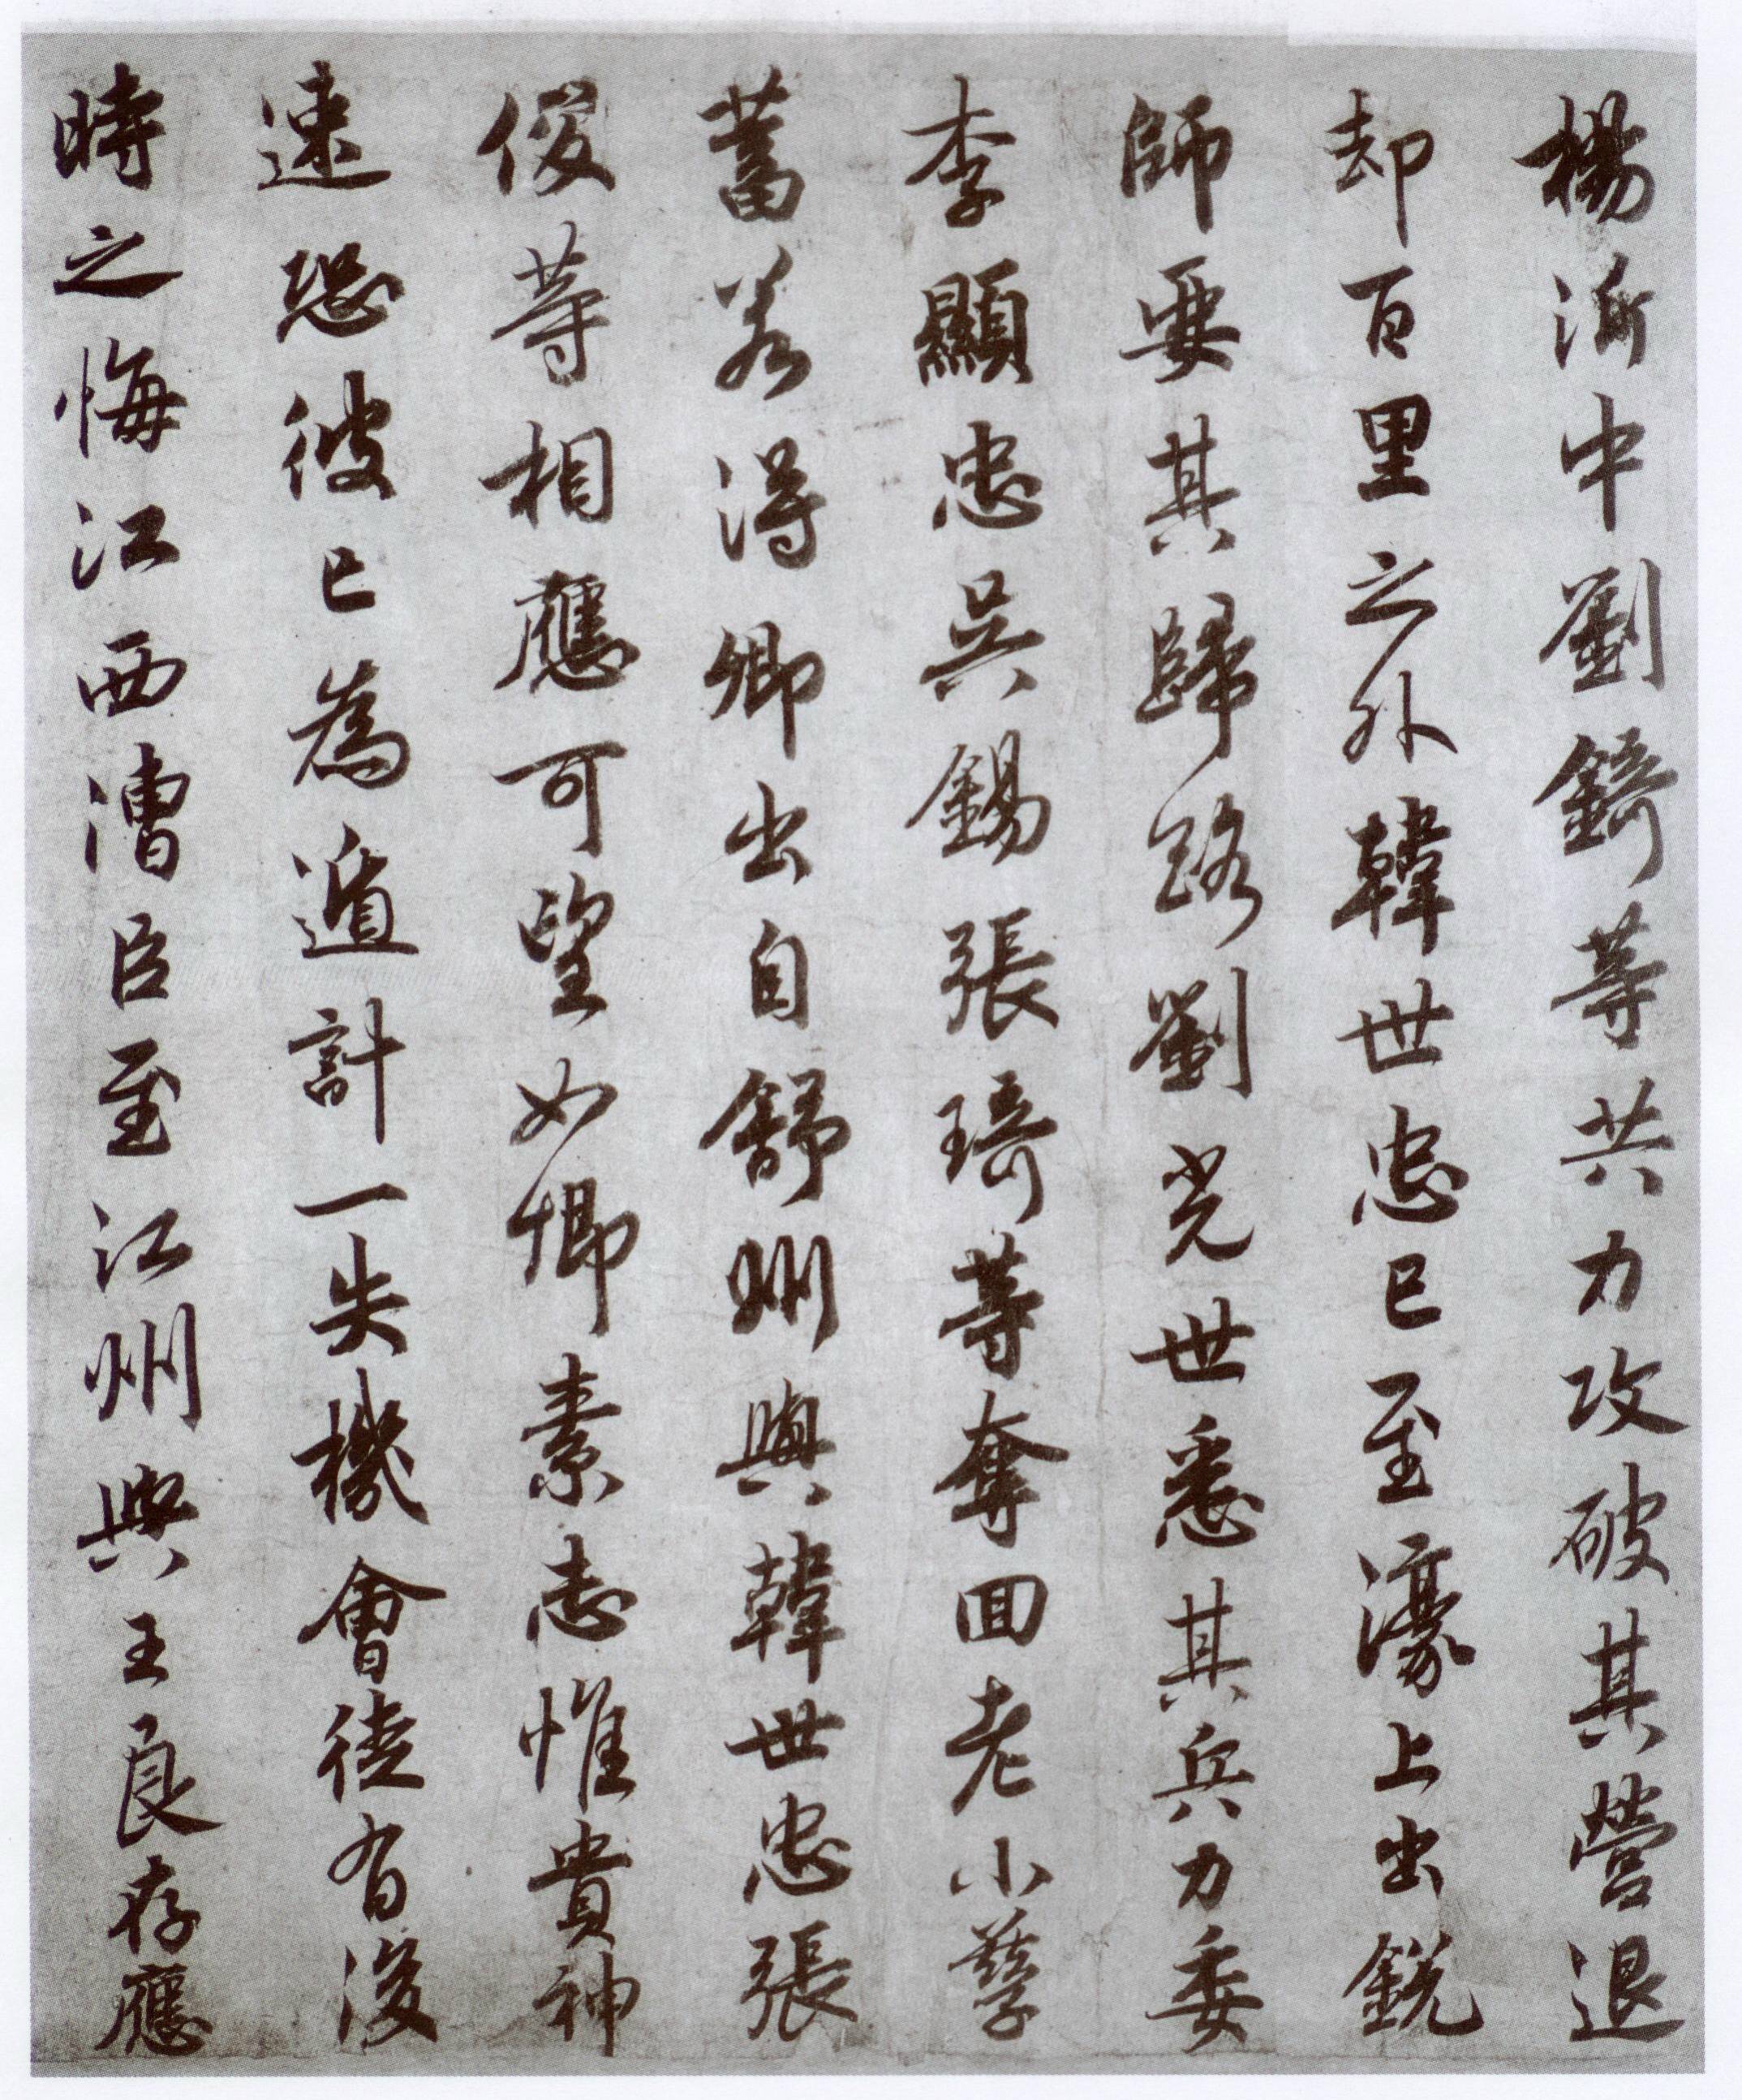 楊沂中劉錡等共力攻破其營退
却百里之外韓世忠已至濠上出銳
師要其歸路劉光世悉其兵力委
李顯忠吳錫張琦等奪回老小孳
蓄若得卿出自舒州與韓世忠張
俊等相應可望如卿素志惟貴神
速恐彼已為遁計一失機會徒有後
時之悔江西漕臣至江州與王良存應